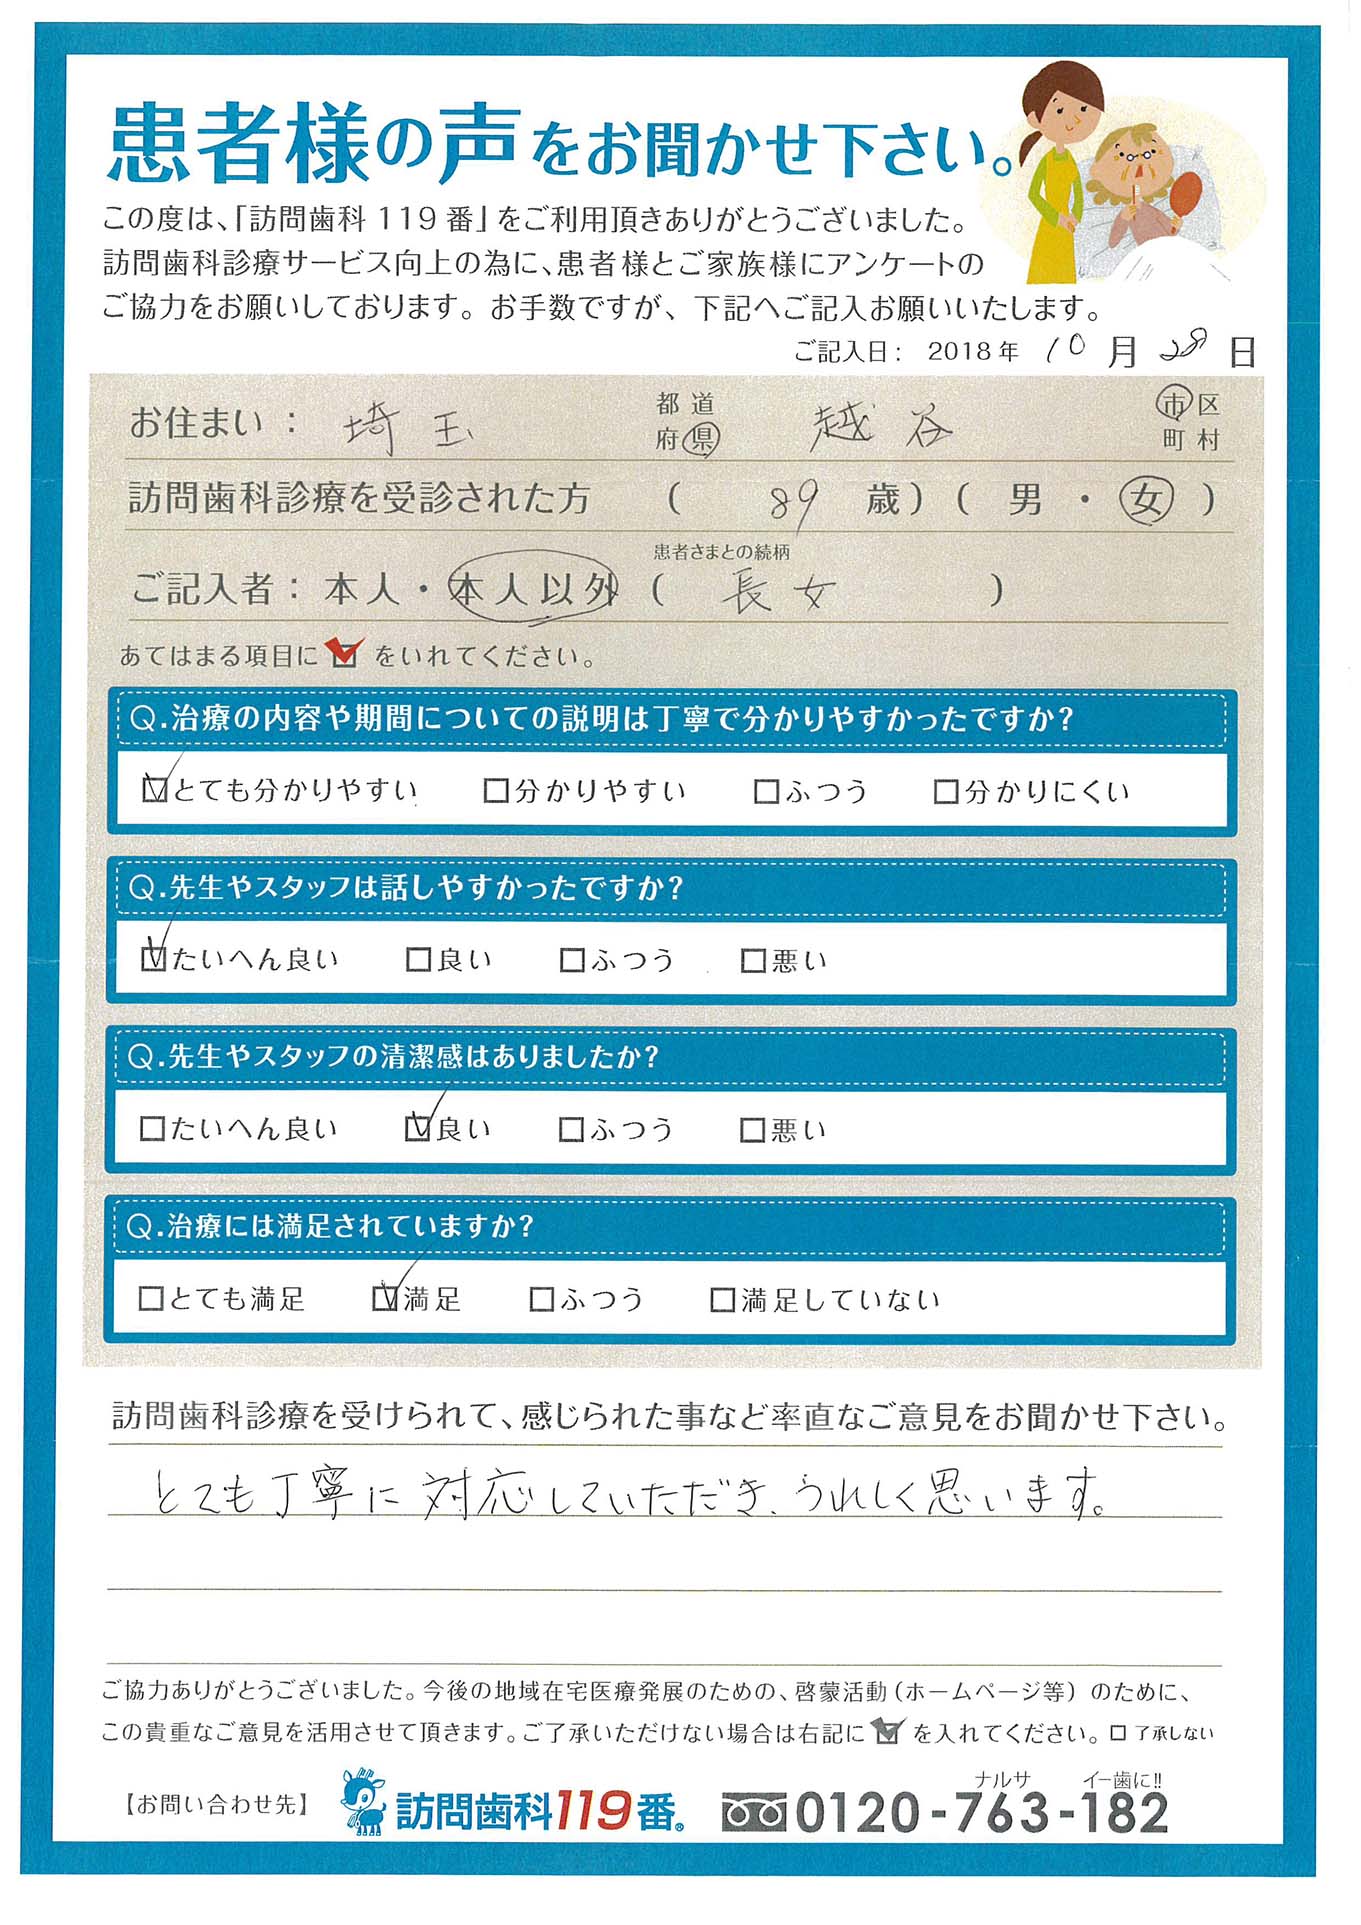 患者様の声をお聞かせ下さい。
この度は、「訪問歯科119番」をご利用頂きありがとうございました。
訪問歯科診療サービス向上の為に、患者様とご家族様にアンケートの
ご協力をお願いしております。お手数ですが、下記へご記入お願いいたします。
ご記入日： 2018年 10月28日
お住まい： 埼玉 都道府県 越谷 市区町村
訪問歯科診療を受診された方 （ 89 歳）（ 男 ・ 女 ）
患者さまとの続柄
ご記入者：本人・本人以外（ 長女 ）
あてはまる項目に☑をいれてください。
Q.治療の内容や期間についての説明は丁寧で分かりやすかったですか？
☑とても分かりやすい □分かりやすい □ふつう □分かりにくい
Q.先生やスタッフは話しやすかったですか？
☑たいへん良い □良い □ふつう □悪い
Q.先生やスタッフの清潔感はありましたか？
□たいへん良い ☑良い □ふつう □悪い
Q.治療には満足されていますか？
□とても満足 ☑満足 □ふつう □満足していない
訪問歯科診療を受けられて、感じられた事など率直なご意見をお聞かせ下さい。
とても丁寧に対応していただき、うれしく思います。
ご協力ありがとうございました。今後の地域在宅医療発展のための、啓蒙活動（ホームページ等）のために、
この貴重なご意見を活用させて頂きます。ご了承いただけない場合は右記に☑を入れてください。□了承しない
ナルサ イー歯に!!
【お問い合わせ先】 訪問歯科119番® 0120-763-182